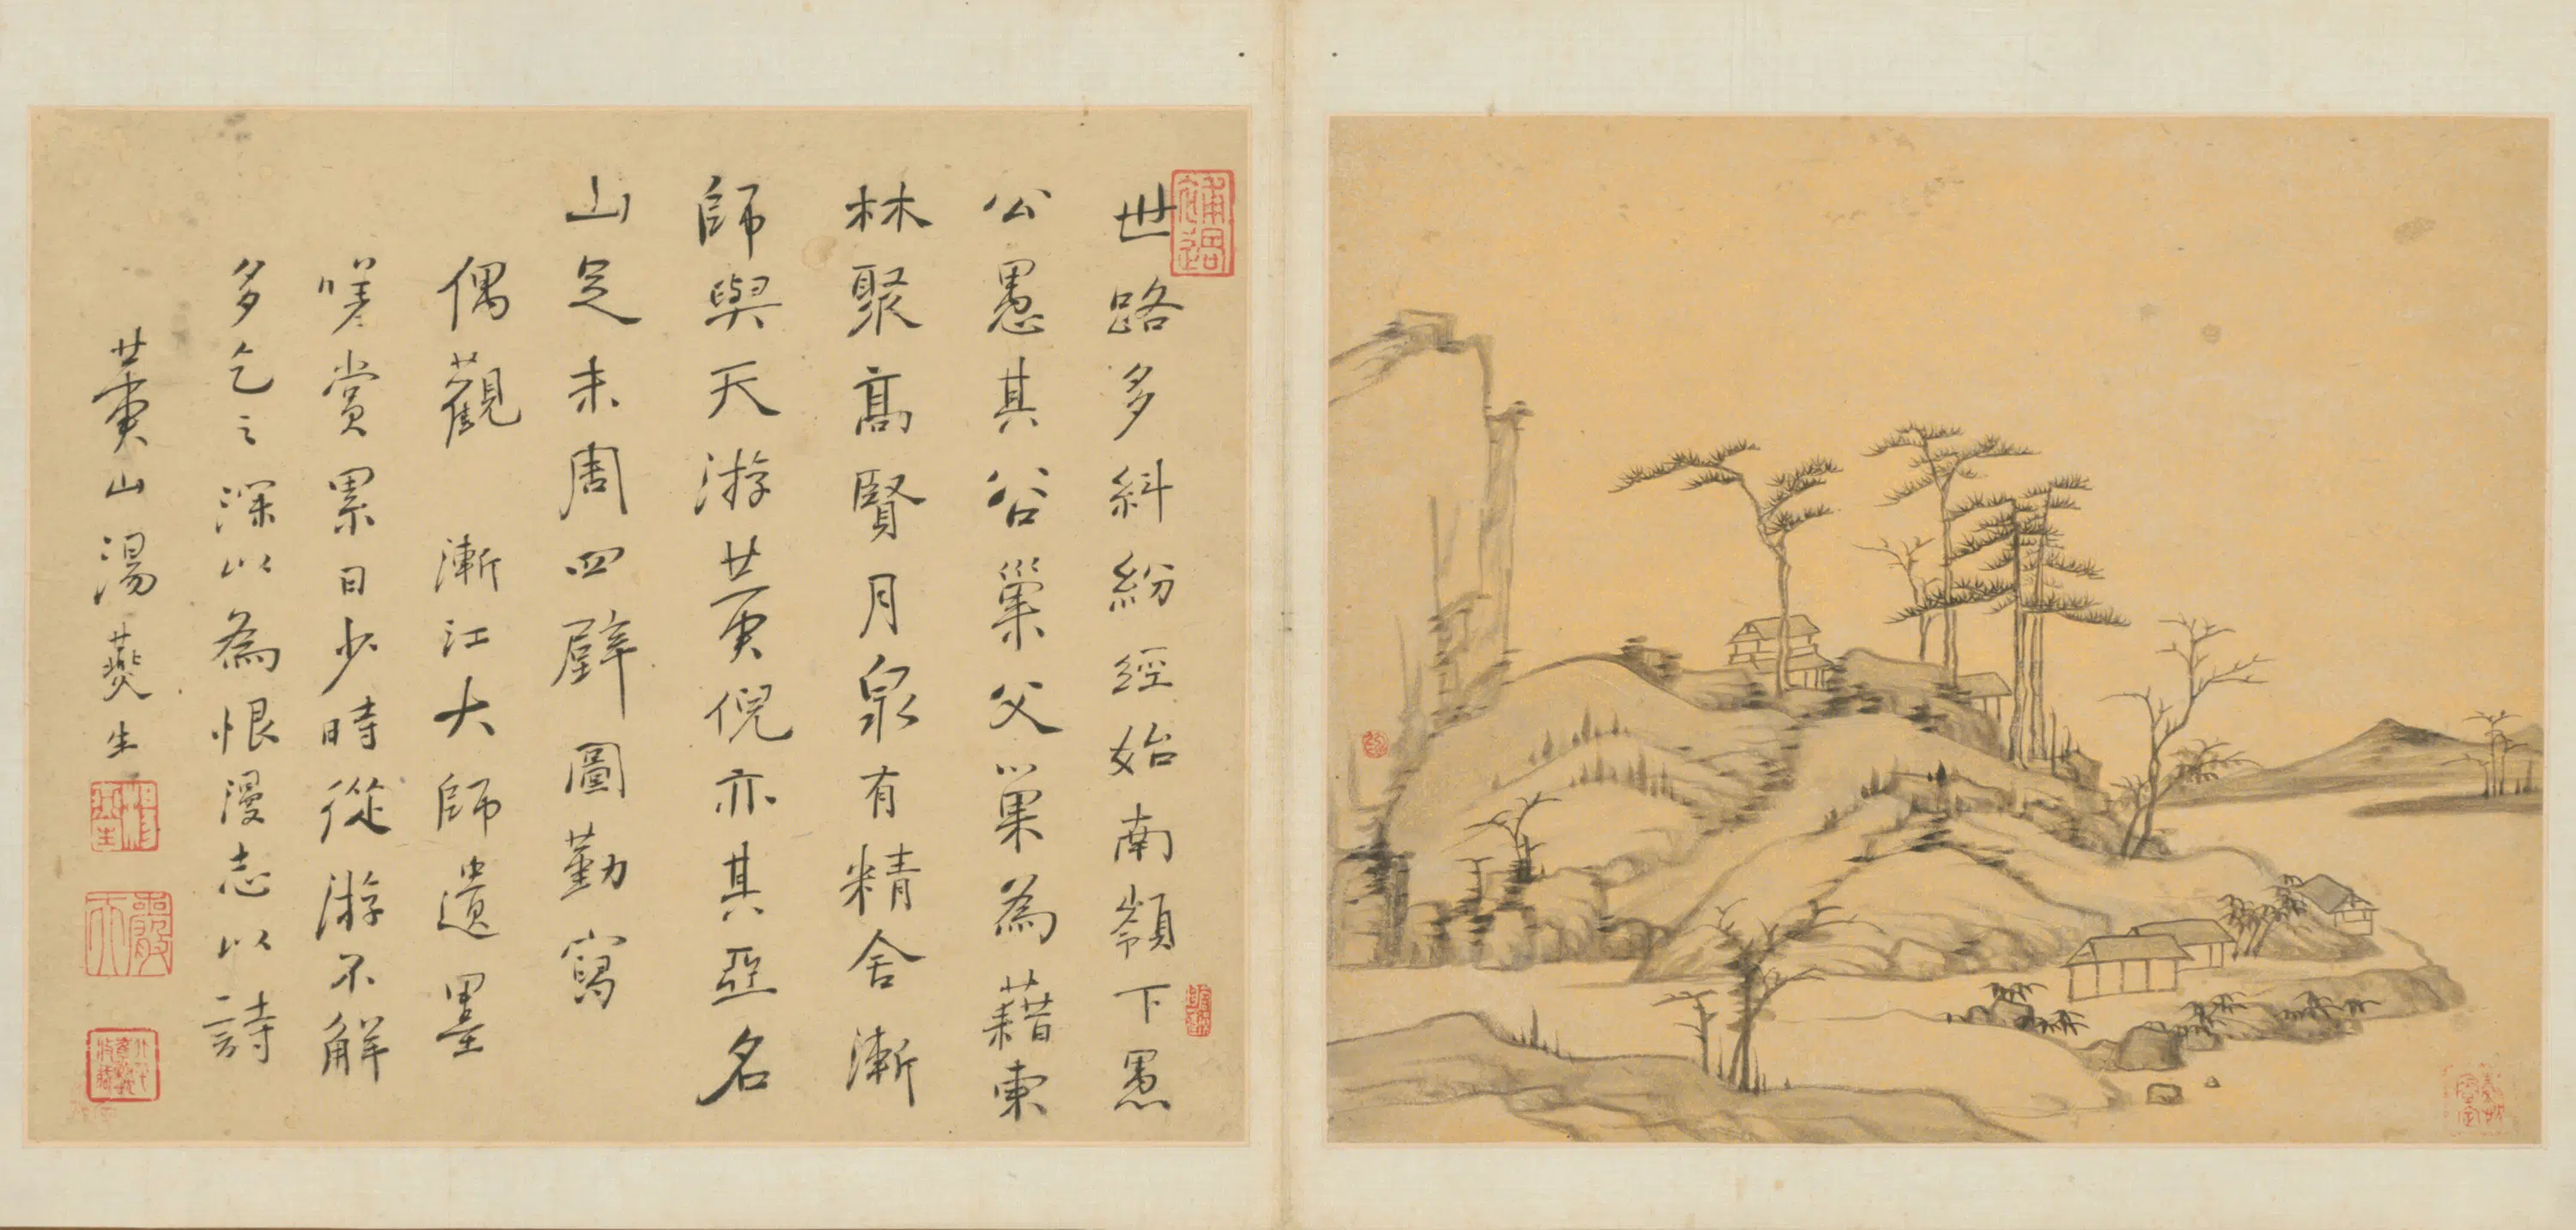 世路多糾紛經始南嶺下愚
公愚其谷巢父以巢為藉東
林聚高賢月泉有精舍漸
師與天游黃倪亦其亞名
山足未周四壁圖勤寫
偶觀 漸江大師遺墨
嘆賞累日少時從游不解
多乞之深以為恨漫志以詩
黃山湯燕生